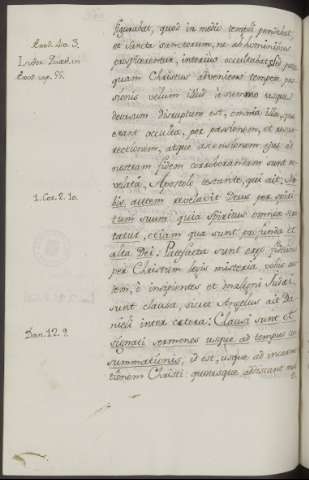 figurabat, quod in medio templi pendebat,
et Sancta Sanctorum, ne ab hominibus
prospicerentur, interius occultabat. Sed post
quam Christus adveniens tempore pas-
sionis velum illud à summo usque
deorsum disruptum est, omnia illa, quæ
erant occulta, per passionem, et resu-
rrectionem, atque ascensionem ejus ad
nostram fidem corroborandam sunt re-
velata, Apostolo testante, qui ait, No-
bis autem revelavit Deus per spiri-
tum suum: quia spiritus omnia scru-
tatur, etiam quæ sunt profunda et
alta Dei. Patefacta sunt ergo fidelibus
per Christum legis misteria, vobis au-
tem, ò insipientes et maligni Judæi,
sunt clausa, sicut Angelus ait Da-
nieli inter cætera: Clausi sunt et
signati sermones usque ad tempus con-
summationis, id est, usque ad incarna-
tionem Christi
Exod. 40. 3.
Exod. cap. 55.
1. Cor. 2. 10.
Dan. 12. 9.